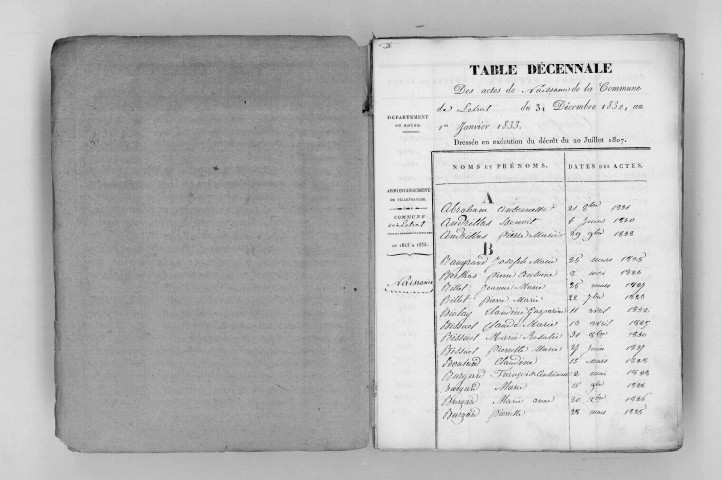 TABLE DÉCENNALE
Des actes de Naissance de la Commune
de Letrat du 31 Décembre 1832, au
1er Janvier 1833.
Dressée en exécution du décret du 20 Juillet 1807.
DÉPARTEMENT
DU RHÔNE.
ARRONDISSEMENT
DE VILLEFRANCHE.
COMMUNE
de Letrat
DE 1823 A 1833.
Naissance
NOMS ET PRÉNOMS. DATES DES ACTES.
A
Abraham Antoinette 21 8bre
Andrillas Benoit 6 Juin 1830
Andrillas Pierre Marie 29 9bre
B
Beaugrand Joseph Marie 25 mars 1825
Berthas Pierre Antoine 2 mai
Billet Jeanne Marie 26 mars 1829
Billet Pierre Marie 22 7bre 1823
Claudine Gasparine 11 avril 1832
Bissuel Claude Marie 13 avril 1825
Bissuel Marie Rosalie 31 8bre 1830
Bissuel Pierrette Marie 27 Juin 1829
Boulard Claudine 15 Mars 1828
Burgard François 2 mai 1823
Burgard Marie 15 9bre
Burgard Marie anne 20 Xbre 1826
Burgard Pierrette 28 mars